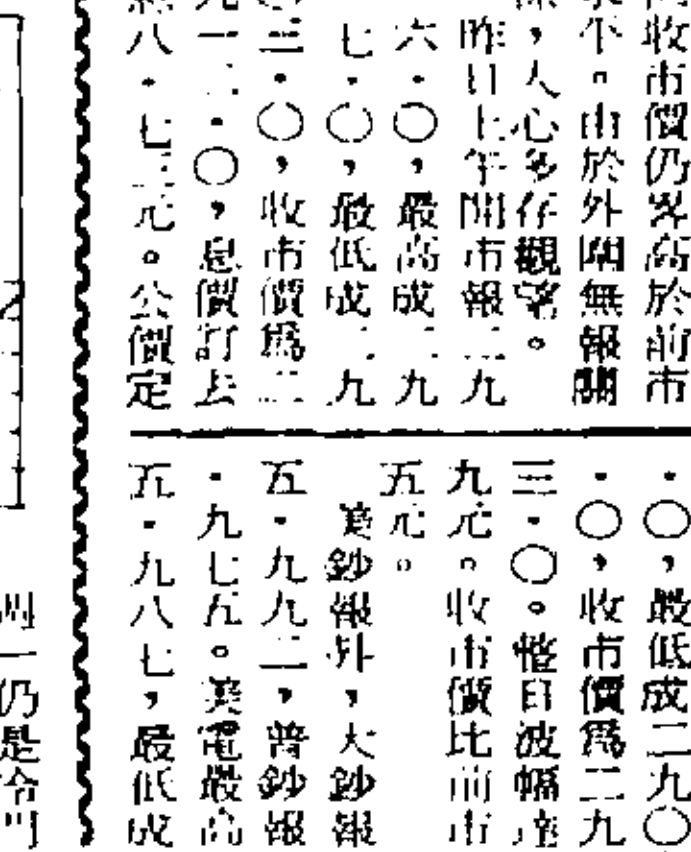 收市價仍畧高於前市
不。由於外圍無報關
係，人心多存觀望。
昨日上午開市報二九
六·〇，最高成二九
七·〇，最低成二九
三·〇，收市價爲二
九一二·〇，息價訂去
八·七三元。公價定
·〇，最低成二九〇
·〇，收市價爲二九
三·〇。整日波幅達
九元。收市價比前市
五元。
美鈔報升，大鈔報
五·九九二，普鈔報
·九七五。美電最高
五·九八七，最低成
一仍是冷門